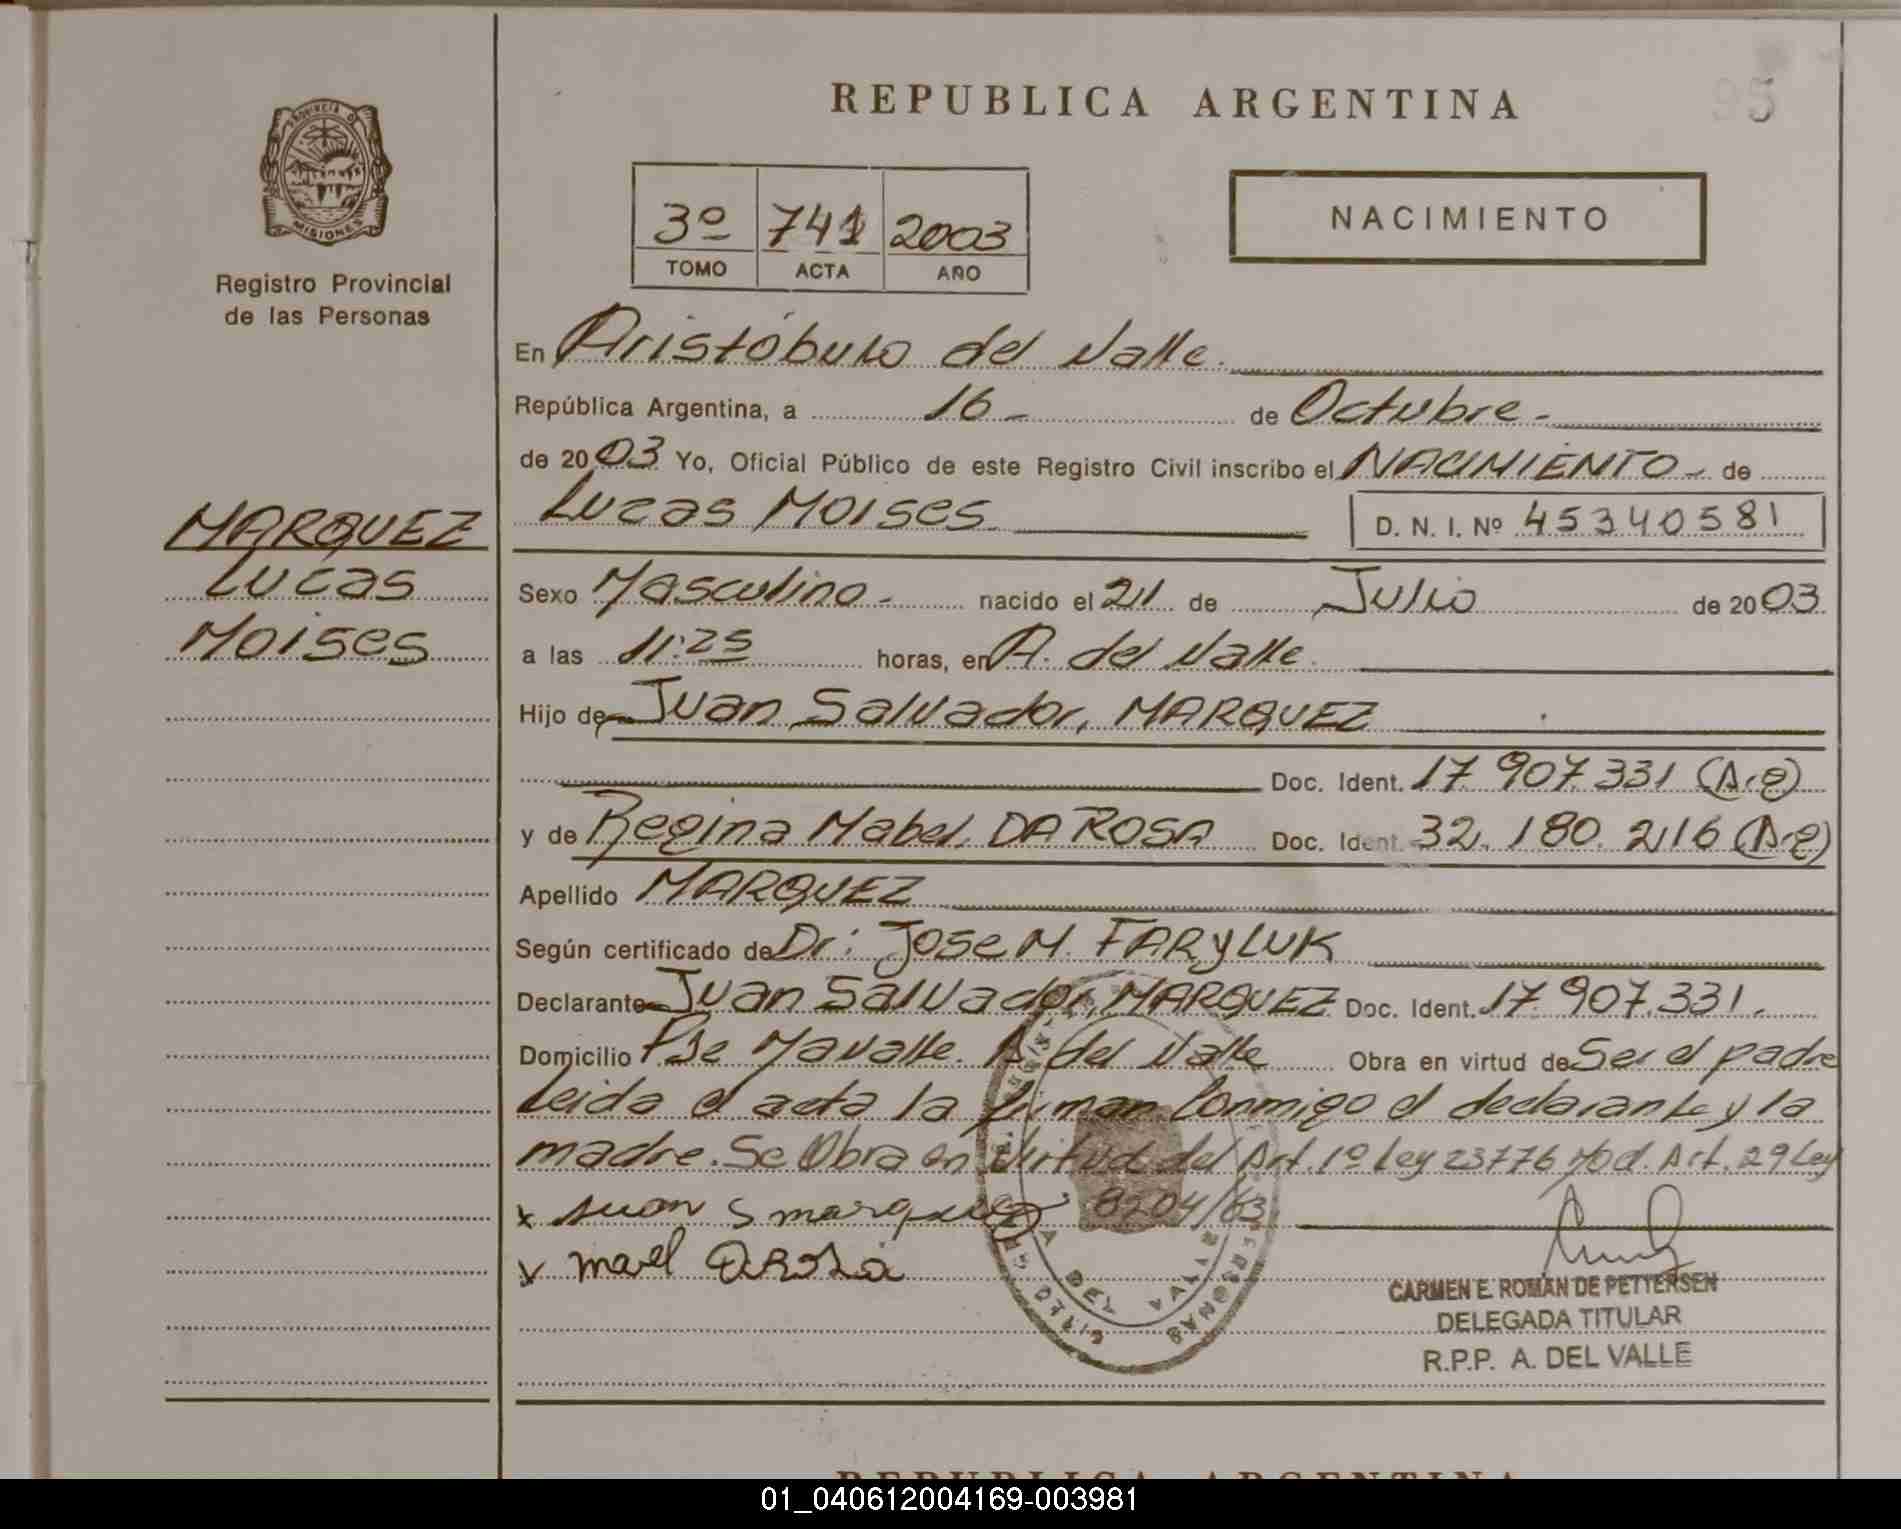 95
REPUBLICA ARGENTINA
PROVINCIA DE
MISIONES
Registro Provincial
de las Personas
3º 741 2003
TOMO ACTA AÑO
NACIMIENTO
En Aristóbulo del Valle.
República Argentina, a 16 - de Octubre -
de 2003 Yo, Oficial Público de este Registro Civil inscribo el NACIMIENTO - de
Lucas Moises
D. N. I. Nº 45340581
MARQUEZ
Lucas
Moises
Sexo Masculino - nacido el 21 de Julio de 2003
a las 11:25 horas, en A. del Valle.
Hijo de Juan Salvador, MARQUEZ
Doc. Ident. 17.907.331 (Arg)
y de Regina Mabel, DA ROSA Doc. Ident. 32.180.216 (Arg)
Apellido MARQUEZ
Según certificado de Dr: Jose M. FARYLUK
Declarante Juan Salvador, MARQUEZ Doc. Ident. 17.907.331.
Domicilio Pje Mavalle. A. del Valle Obra en virtud de Ser el padre
Leida el acta la firman Conmigo el declarante y la
madre. Se Obra en Virtud del Art. 1º Ley 23776 Mod. Art. 29 Ley
8204/63
x Juan S marquez
x
DEL VALLE
PERSONAS
CARMEN E. ROMAN DE PETTERSEN
DELEGADA TITULAR
R.P.P. A. DEL VALLE
REPUBLICA ARGENTINA
01_040612004169-003981